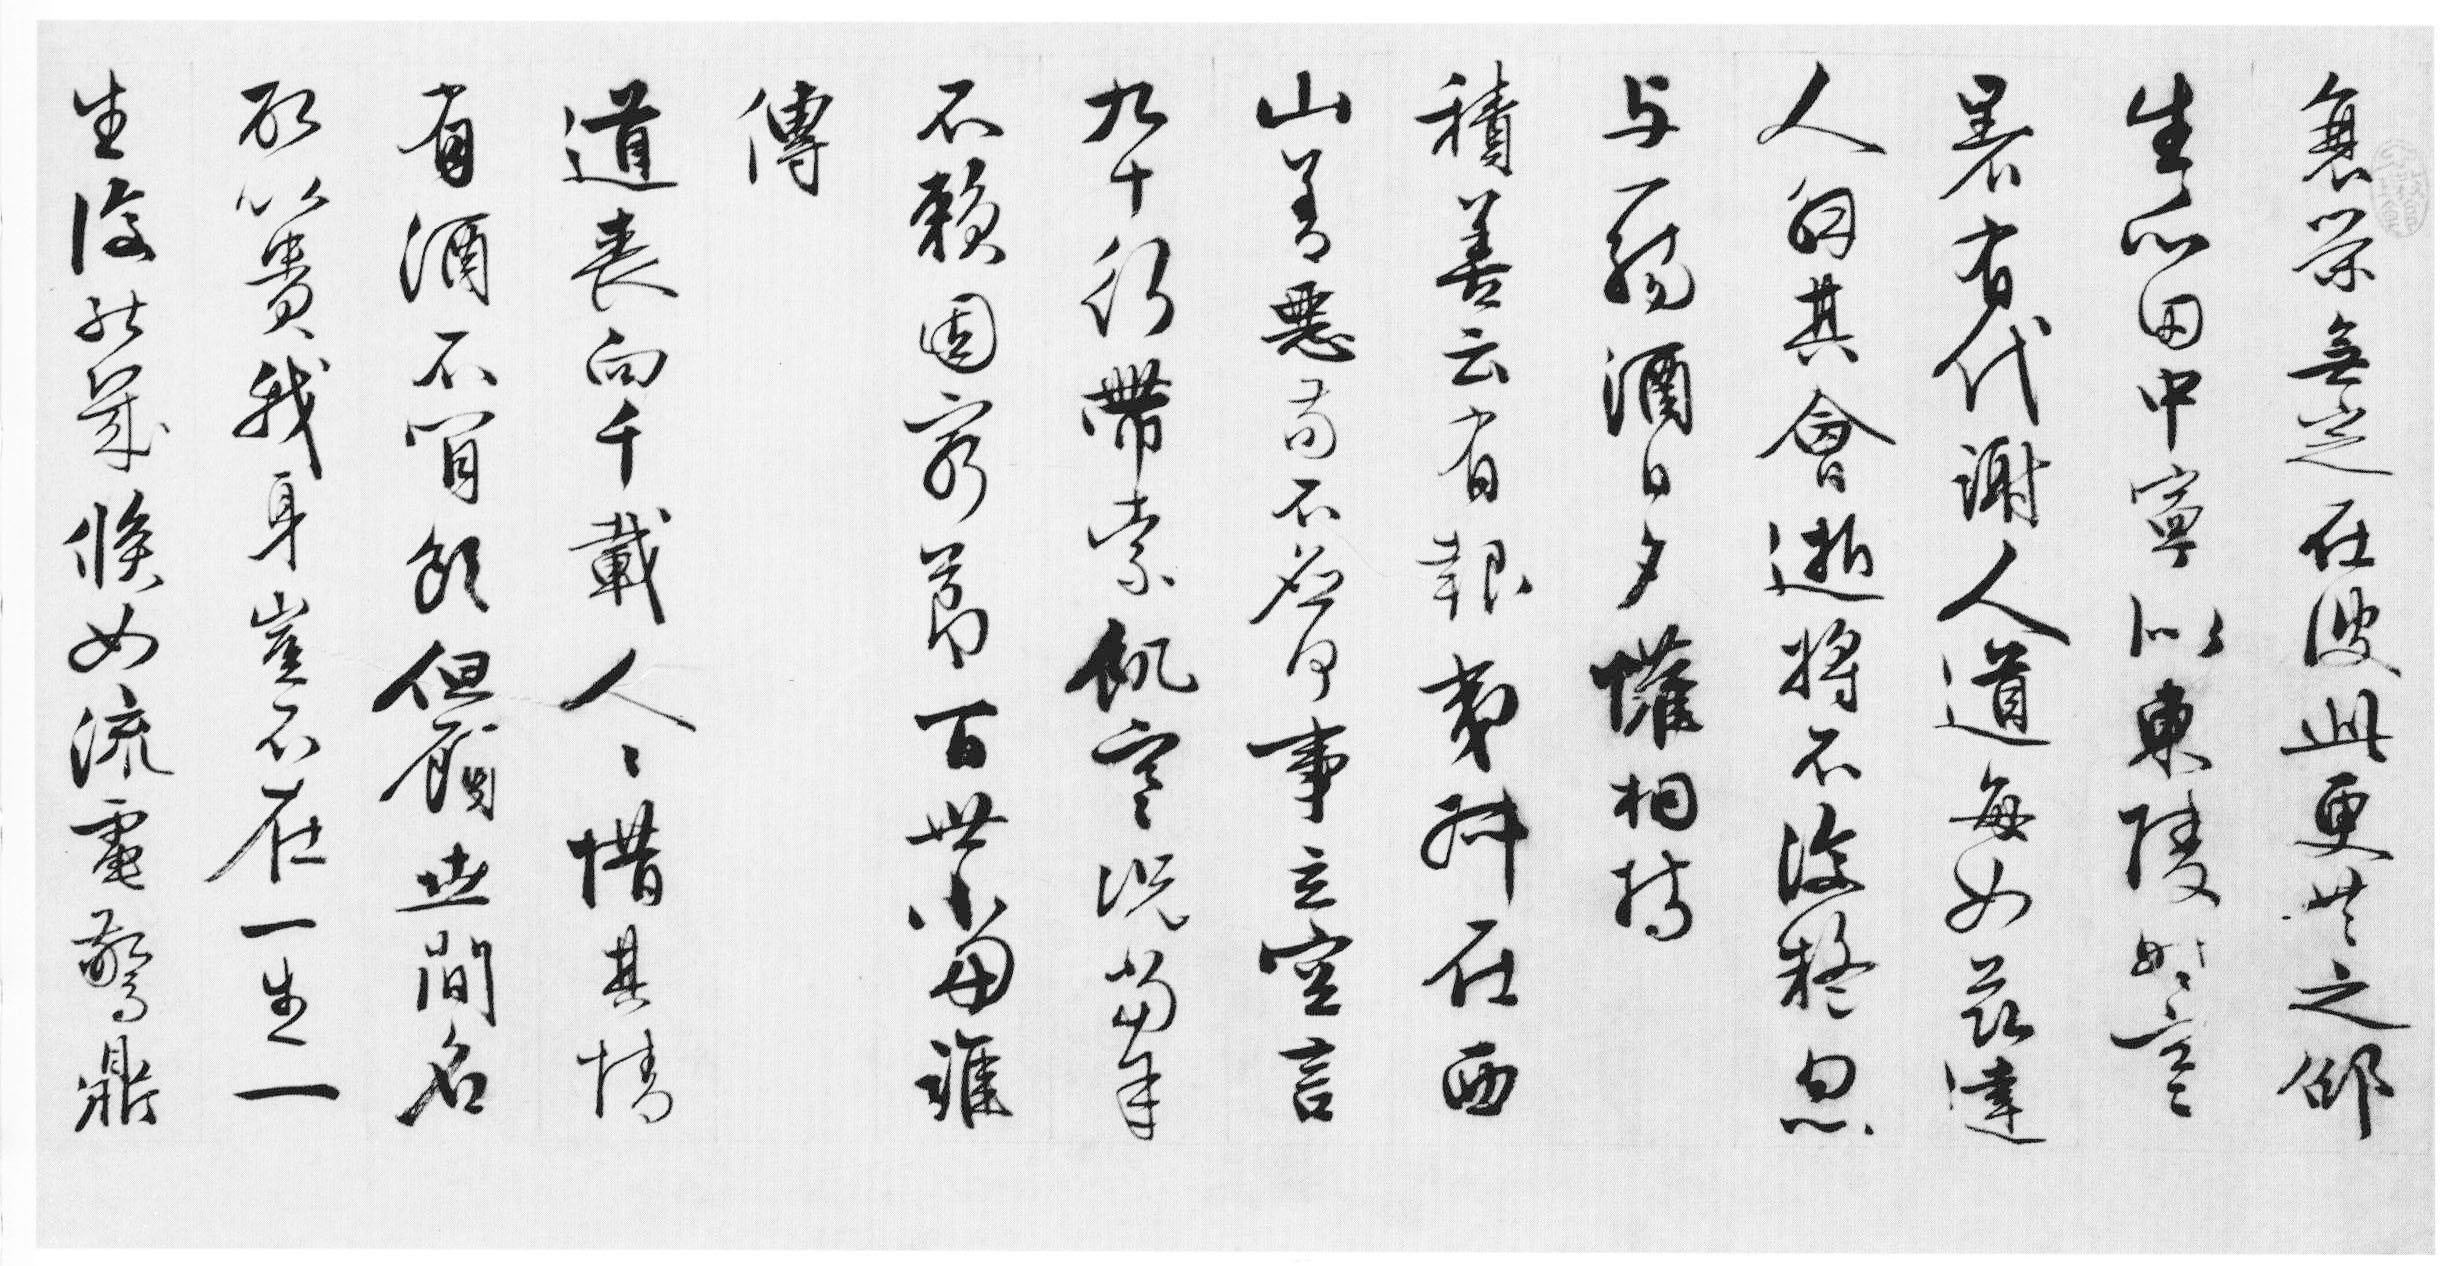 衰榮無定在彼此更共之邵
生瓜田中寧似東陵時寒
暑有代謝人道每如茲達
人解其會逝將不復疑忽
与一觴酒日夕懽相持
積善云有報夷叔在西
山善惡苟不應何事立空言
九十行帶索飢寒況當年
不賴固窮節百世當誰
傳
道喪向千載人〻惜其情
有酒不肯飲但顧世間名
所以貴我身豈不在一生一
生復能幾倏如流電驚鼎